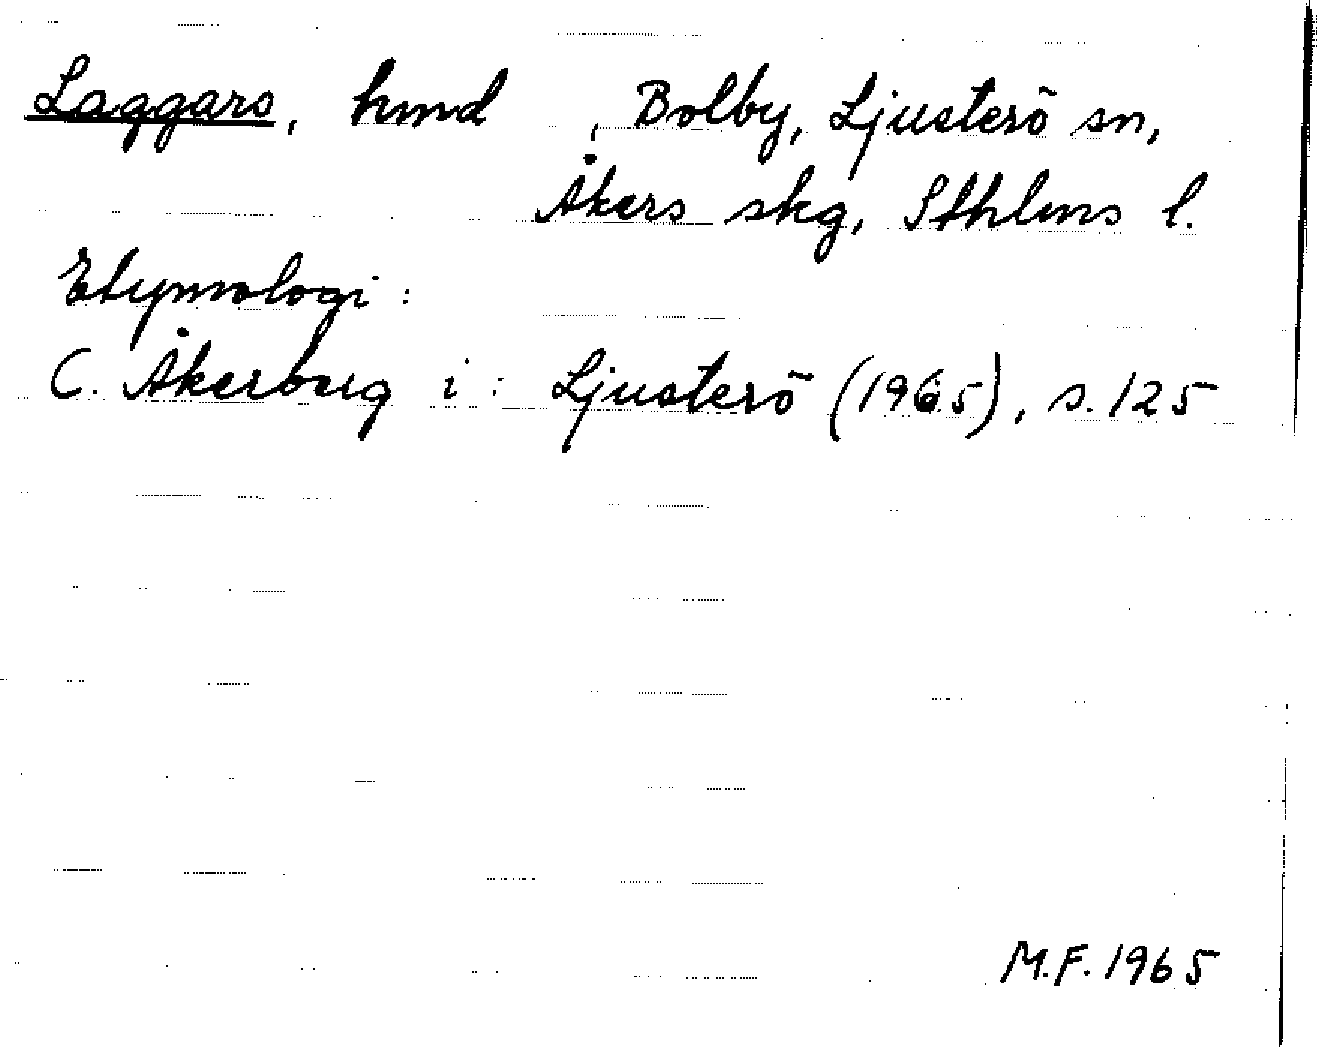 Laggars, hmd , Bolby, Ljusterö sn,
Åkers skg, Sthlms l.
Etymologi:
C. Åkerberg i: Ljusterö (1965), s. 125
M.F. 1965